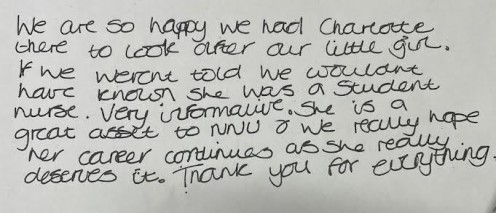 We are so happy we had Charlotte
there to look after our little girl.
If we werent told we wouldnt
have known she was a student
nurse. Very informative. She is a
great asset to NNU & we really hope
her career continues as she really
deserves it. Thank you for everything.